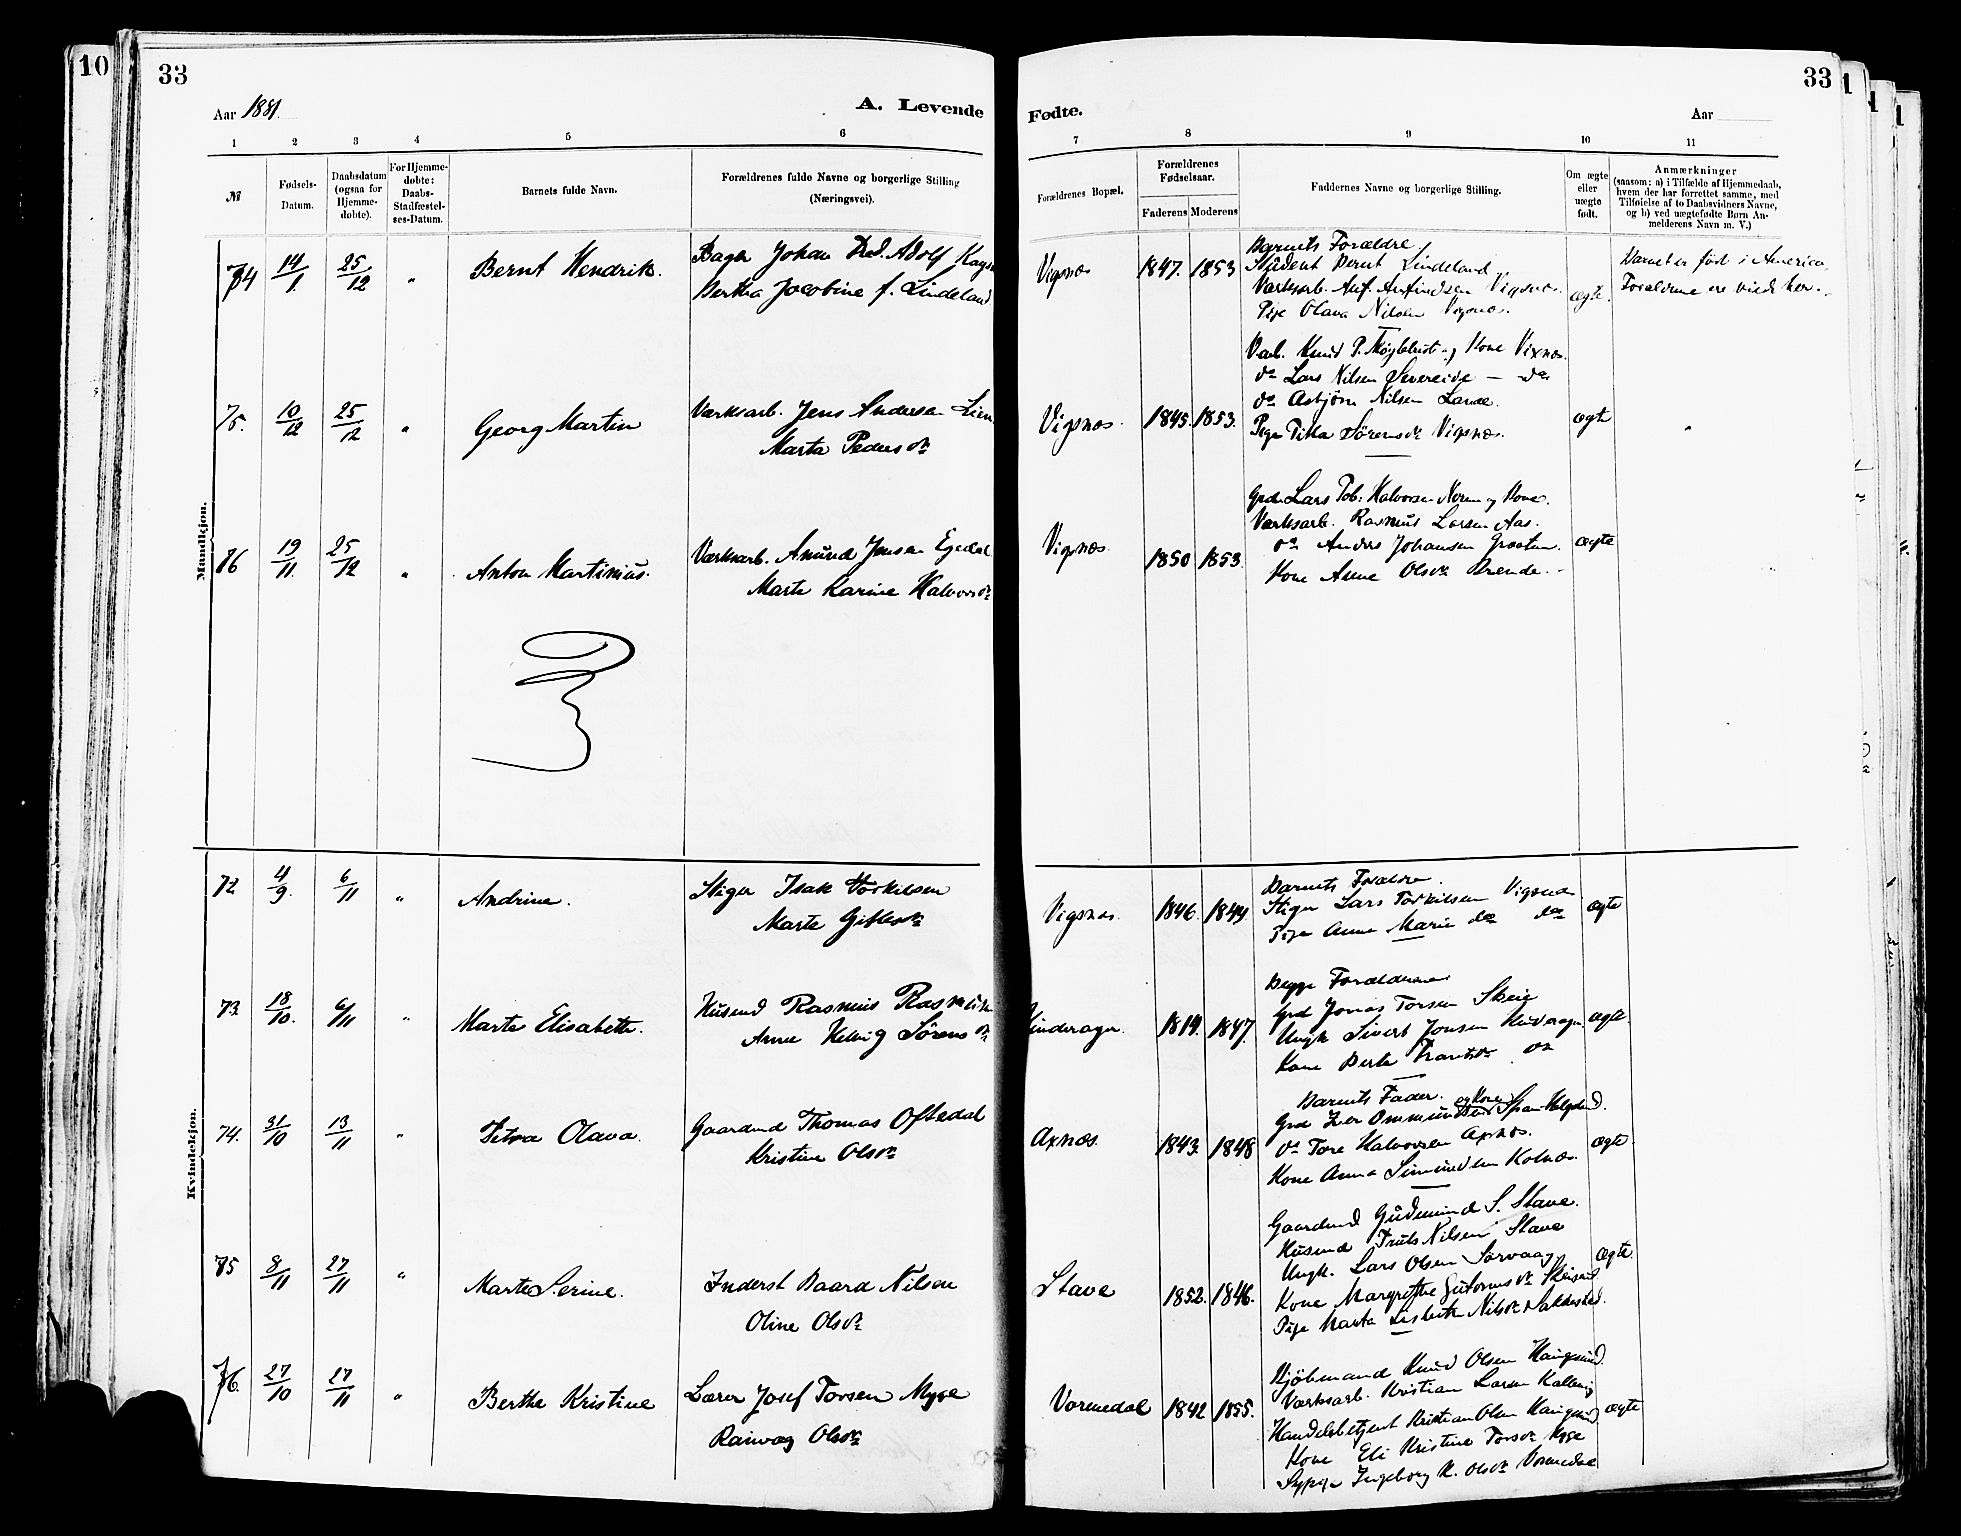 10
33
33
Aar 1881.
A. Levende
Fødte.
Aar
1 2 3 4 5 6
7 8 9 10 11
№
Fødsels-
Datum.
Daabsdatum
(ogsaa for
Hjemme-
døbte).
For Hjemme-
døbte:
Daabs-
Stadfæstel-
ses-Datum.
Barnets fulde Navn.
Forældrenes fulde Navne og borgerlige Stilling
(Næringsvei).
Forældrenes Bopæl.
Forældrenes
Fødselsaar.
Faderens
Moderens
Faddernes Navne og borgerlige Stilling.
Om ægte
eller
uægte
født.
Anmærkninger
(saasom: a) i Tilfælde af Hjemmedaab,
hvem der har forrettet samme, med
Tilføielse af to Daabsvidners Navne,
og b) ved uægtefødte Børn An-
melderens Navn m. V.)
Mandkjøn.
74 14/1. 25/12 " Bernt Hendrik.
Bager Johan Fred. Adolf
Bertha Jacobine f. Lindeland
Vigsnæs 1847. 1853
Barnets Forældre.
Student Bernt Lindeland
Værksarb. Anf. Anfindsen Vigsnæs.
Pige Olava Nilsen Vigsnæs.
ægte.
Barnet er født i America,
Forældrene ere viede her.
75. 10/12 25/12 " Georg Martin
Værksarb. Jens Andersen Lien
Marta Pedersdr
Vigsnæs. 1845. 1853.
Varb. Knud P. og Kone Vixnæs.
do Lars Nilsen Severeide — do
do Asbjørn Nilsen Lande.
Pige Tilla Sørensdr Vigsnæs.
ægte "
76 19/11. 25/12 " Anton Martinius.
Værksarb. Amund Jensen Egedal
Marte Karine Halvorsdr
Vigsnæs. 1850 1853.
Grd. Lars Tob. Halvorsen og Kone.
Værksarb. Rasmus Larsen Aas.
do Anders Johansen
Kone Anne Olsdr Brende.
ægte
Kvindekjøn.
72 4/9. 6/11 " Andrine.
Stiger Isak Torkelsen
Marte
Vigsnæs. 1846. 1849
Barnets Forældre.
Stiger Lars Torkilsen Vigsnæs
Pige Anne Marie do do
ægte
73. 18/10. 6/11 " Marte Elisabeth.
Husmd Rasmus
Anne Helvig Sørensdr
1819. 1847.
Begge Forældrene
Grd Jonas Torsen Skeie
Ungk Sivert Jonsen
Kone Berte do
ægte.
74. 31/10 13/11 " Petra Olava.
Gaardmd Thomas Oftedal
Kristine Olsdr
Axnæs. 1843. 1848
Barnets Fader.
Grd Iver Ommundsen og Kone
do Tore Halvorsen Axnæs.
Kone Anna Kolnæs.
ægte
75 8/11 27/11 " Marte Serine.
Inderst Baard Nilsen
Oline Olsdr
Stave 1852. 1846.
Gaardmd Gudmund S. Stave.
Husmd Truls Nilsen Stave
Ungk. Lars Olsen Sørvaag
Kone Margrethe Gutormsdr
Pige Marta Lisbeth Nilsdr
ægte.
76. 27/10 27/11 " Berthe Kristine
Lærer Josef Torsen Myge
Olsdr
Vormedal 1842 1855.
Kjøbmand Knud Olsen Haugesund.
Værksarb. Kristian Larsen
Handelsbetjent Kristian Olsen Haugesund
Kone Eli Kristine Torsdr Myge
Sypige Ingeborg K. Olsdr Vormedal
ægte